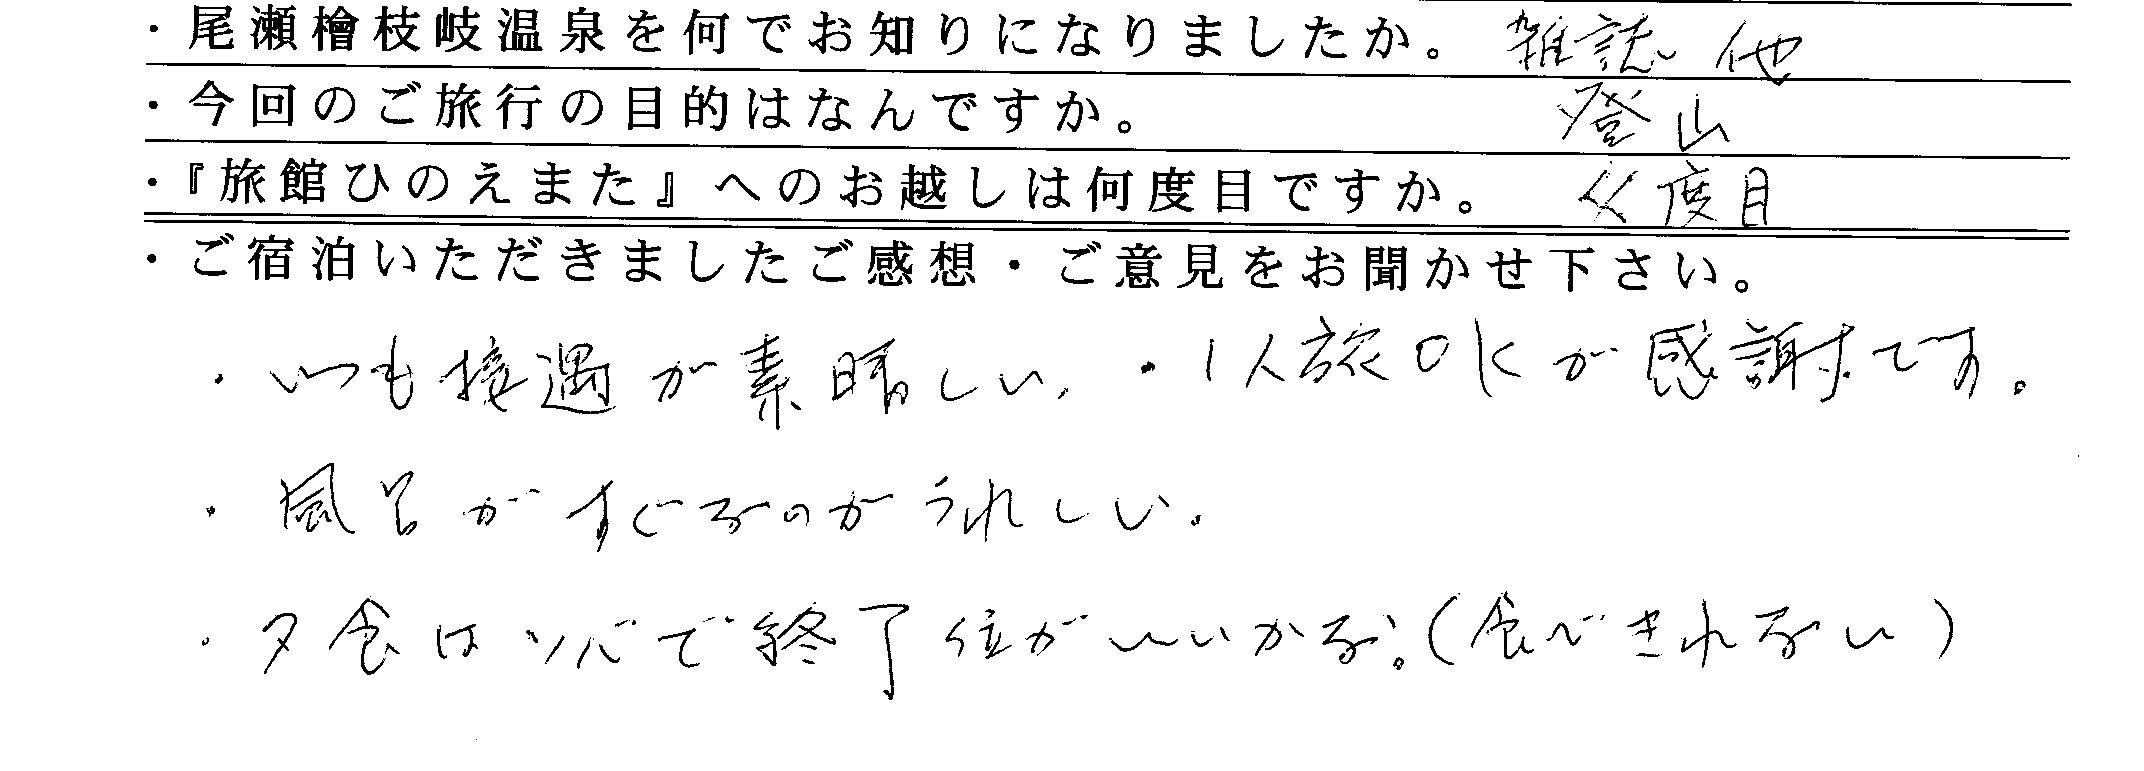 ・尾瀬檜枝岐温泉を何でお知りになりましたか。 雑誌 他
・今回のご旅行の目的はなんですか。 登山
・『旅館ひのえまた』へのお越しは何度目ですか。 度目
・ご宿泊いただきましたご感想・ご意見をお聞かせ下さい。
・いつも接遇が素晴しい、・1人旅OKが感謝です。
・風呂がすぐなのがうれしい。
・夕食はソバで終了位がいいかな。(食べきれない)